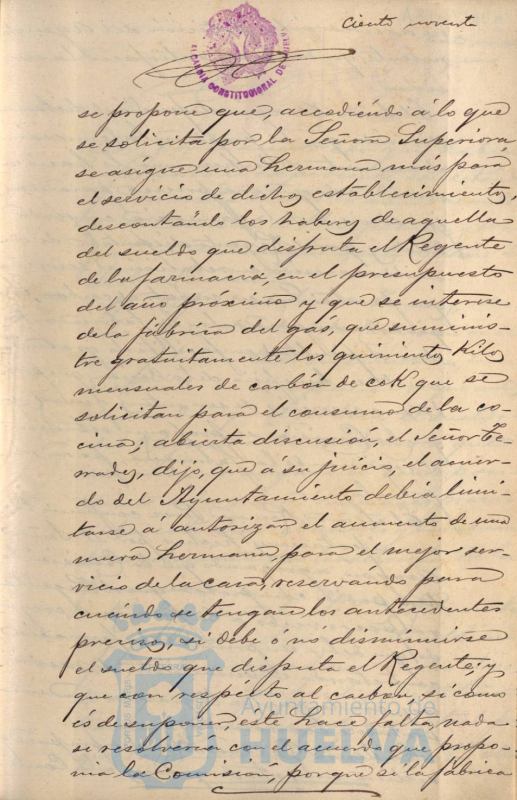 Ciento noventa
ALCALDIA CONSTITUCIONAL DE HUELVA
se propone que, accediéndo á lo que
se solicita por la Señora Superiora
se asigne una hermana más para
el servicio de dichos establecimientos,
descontándo los haberes de aquella
del sueldo que disfruta el Regente
de la farmacia, en el presupuesto
del año próximo y que se interese
de la fábrica del gás, que suminis-
tre gratuitamente los quinientos Kilos
mensuales de carbón de cok que se
solicitan para el consumo de la co-
cina; abierta discusión, el Señor
dijo, que á su juicio, el acuer-
do del Ayuntamiento debia limi-
tarse á autorizar el aumento de una
nueva hermana para el mejor ser-
vicio de la casa, reservándo para
cuándo se tengan los antecedentes
precisos, si debe ó nó disminuirse
el sueldo que disfruta el Regente; y
que con respécto al carbón, si como
és de suponer, este hace falta, nada
se resolveria con el acuerdo que propo-
nia la Comisión, porque si la fábrica
Ayuntamiento de
HUELVA